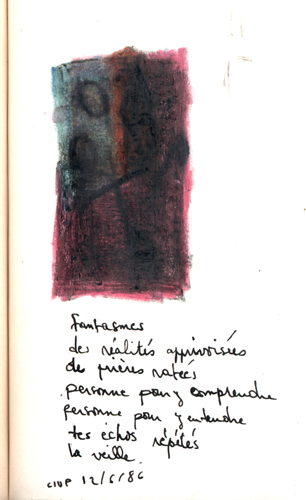 fantasmes
des réalités apprivoisées
de prières ratées
personne pour y comprendre
personne pour y entendre
tes échos répétés
la veille.
CIUP 12/6/86